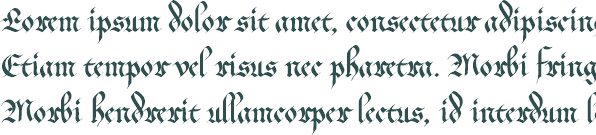 Lorem ipsum dolor sit amet, consectetur adipiscing
Etiam tempor vel risus nec pharetra. Morbi fring
Morbi hendrerit ullamcorper lectus, id interdum l